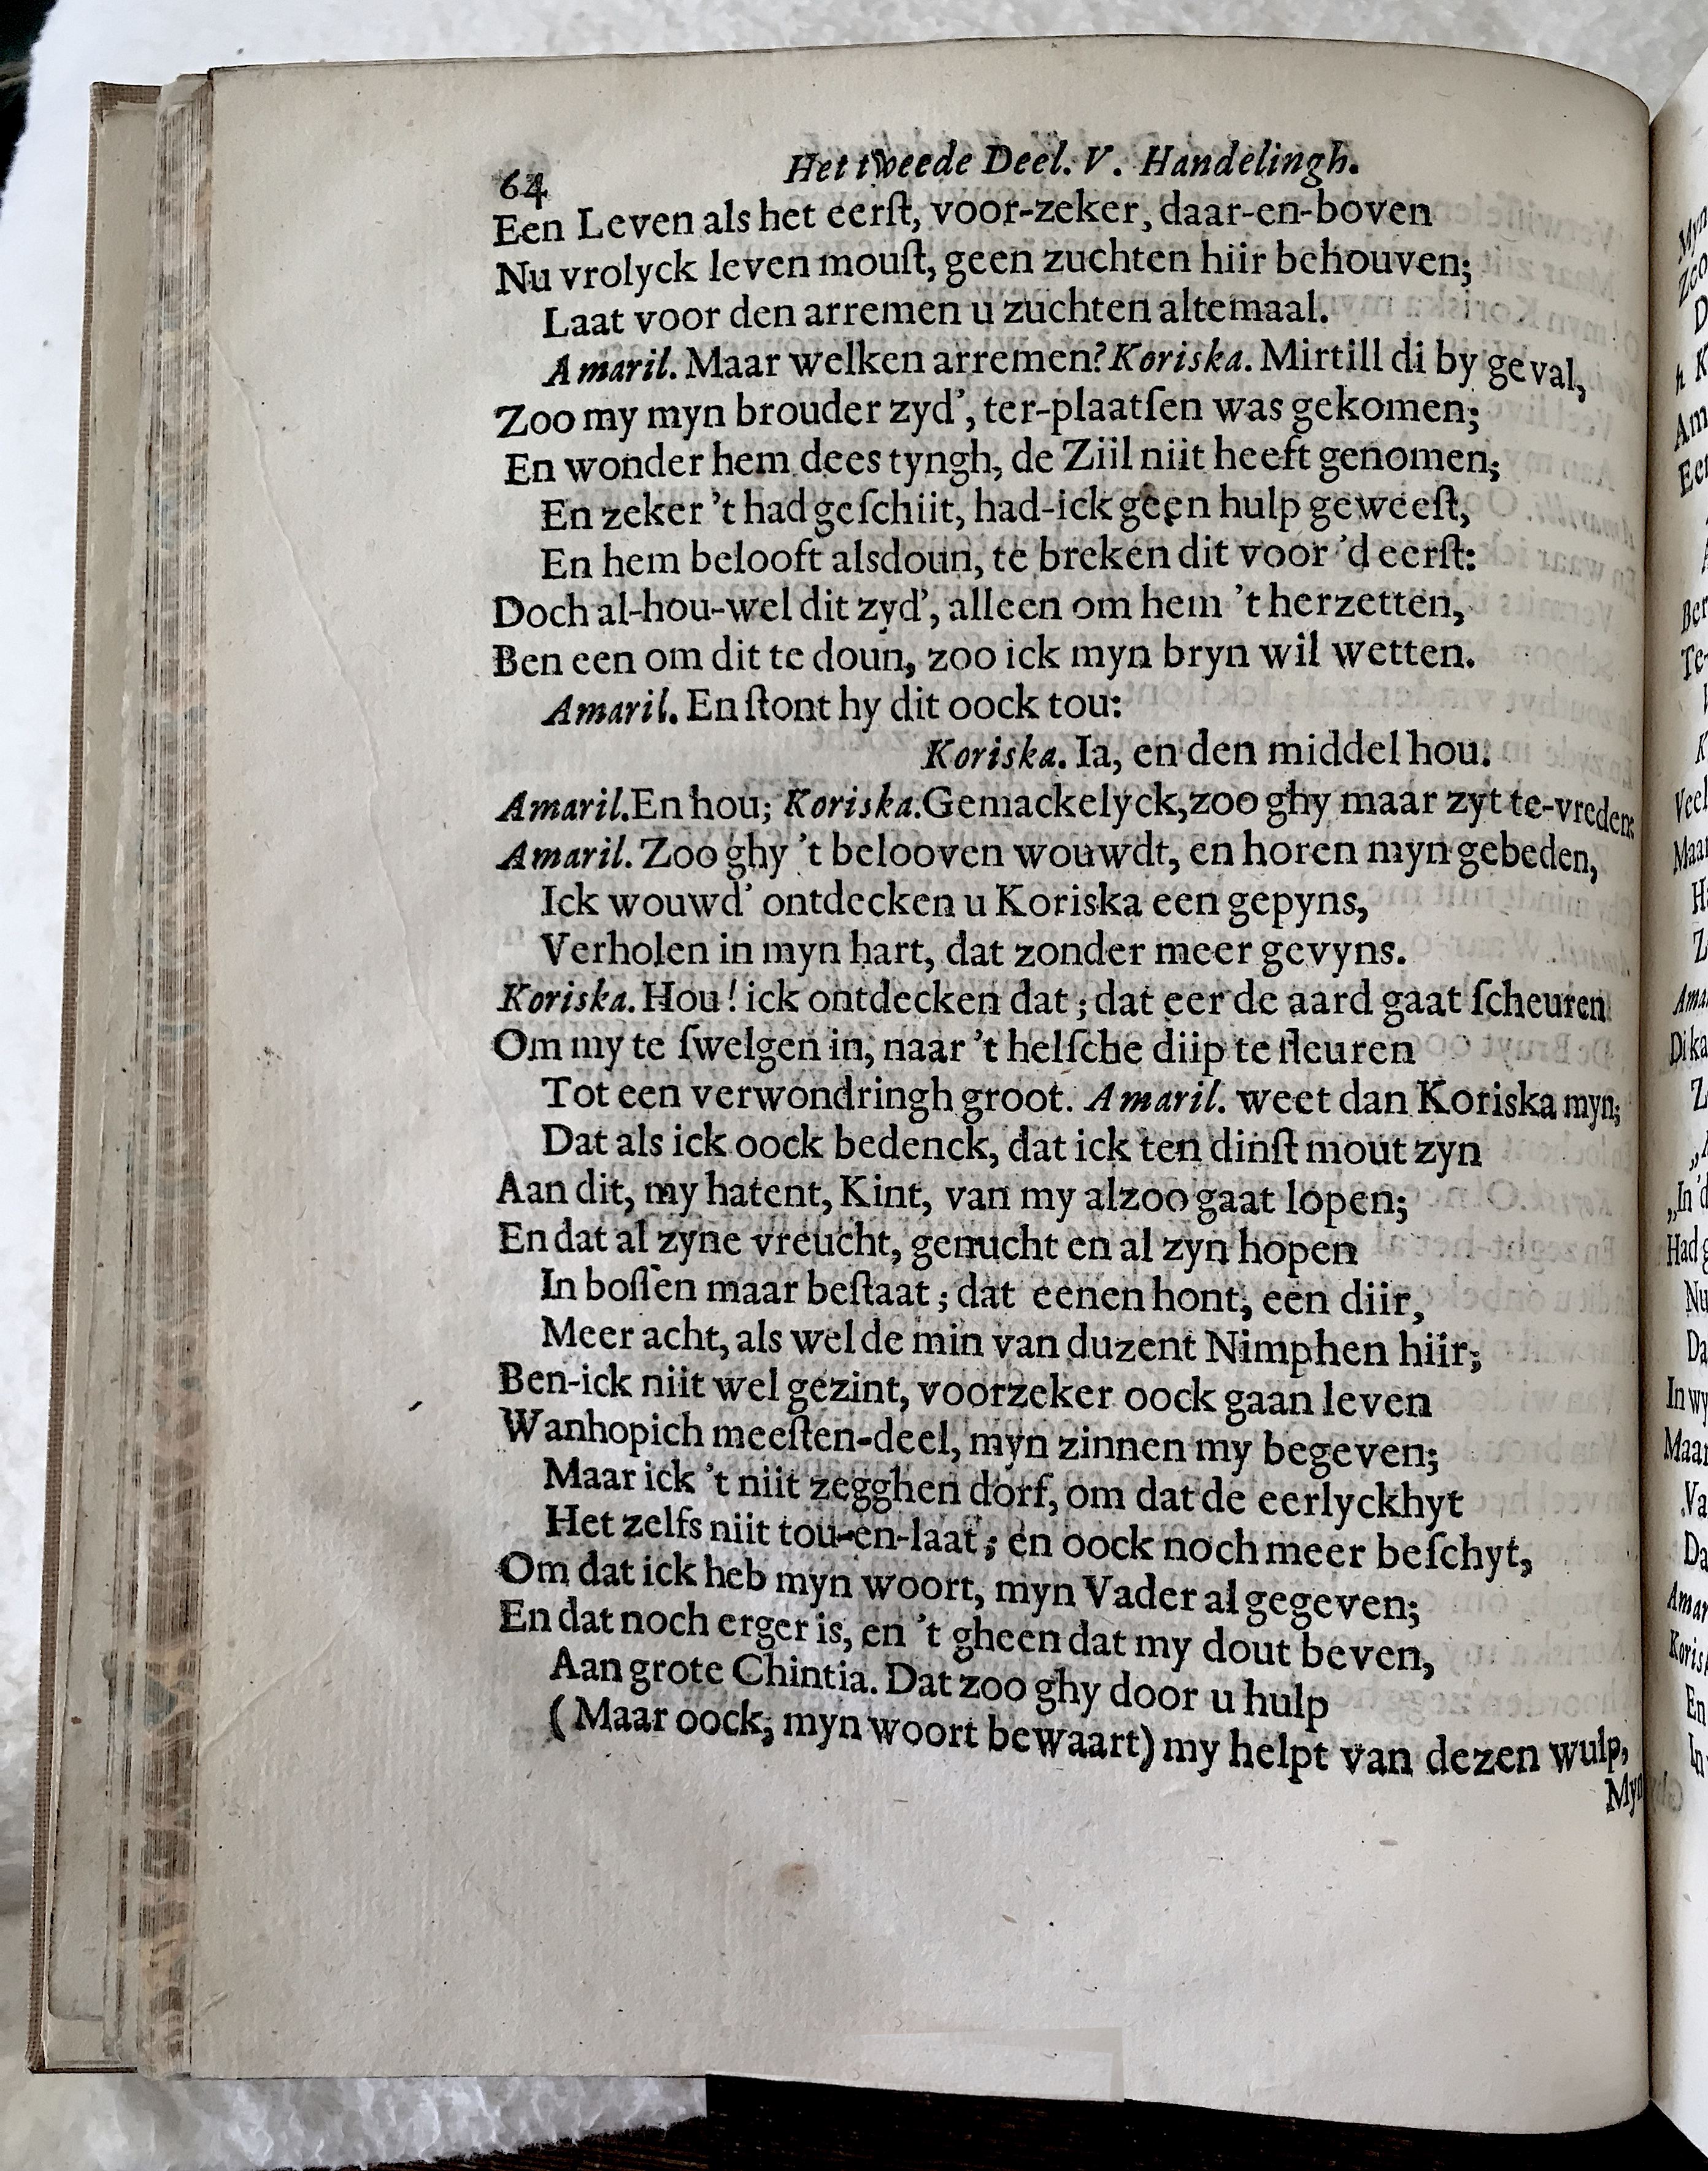 64 Het tweede Deel. V. Handelingh.
Een Leven als het eerſt, voor-zeker, daar-en-boven
Nu vrolyck leven mouſt, geen zuchten hiir behouven;
Laat voor den arremen u zuchten altemaal.
Amaril. Maar welken arremen? Koriska. Mirtill di by geval,
Zoo my myn brouder zyd', ter-plaatſen was gekomen;
En wonder hem dees tyngh, de Ziil niit heeft genomen;
En zeker 't had geſchiit, had-ick geen hulp geweeſt,
En hem belooft alsdoun, te breken dit voor 'd eerſt:
Doch al-hou-wel dit zyd', alleen om hem 't herzetten,
Ben een om dit te doun, zoo ick myn bryn wil wetten.
Amaril. En ſtont hy dit oock tou:
Koriska. Ia, en den middel hou.
Amaril. En hou; Koriska. Gemackelyck, zoo ghy maar zyt te-vreden:
Amaril. Zoo ghy 't belooven wouwdt, en horen myn gebeden,
Ick wouwd' ontdecken u Koriska een gepyns,
Verholen in myn hart, dat zonder meer gevyns.
Koriska. Hou! ick ontdecken dat; dat eer de aard gaat ſcheuren
Om my te ſwelgen in, naar 't helſche diip te ſleuren
Tot een verwondringh groot. Amaril. weet dan Koriska myn;
Dat als ick oock bedenck, dat ick ten dinſt mout zyn
Aan dit, my hatent, Kint, van my alzoo gaat lopen;
En dat al zyne vreucht, genucht en al zyn hopen
In boſſen maar beſtaat; dat eenen hont, een diir,
Meer acht, als wel de min van duzent Nimphen hiir;
Ben-ick niit wel gezint, voorzeker oock gaan leven
Wanhopich meeſten-deel, myn zinnen my begeven;
Maar ick 't niit zegghen dorf, om dat de eerlyckhyt
Het zelfs niit tou-en-laat; en oock noch meer beſchyt,
Om dat ick heb myn woort, myn Vader al gegeven;
En dat noch erger is, en 't gheen dat my dout beven,
Aan grote Chintia. Dat zoo ghy door u hulp
(Maar oock, myn woort bewaart) my helpt van dezen wulp,